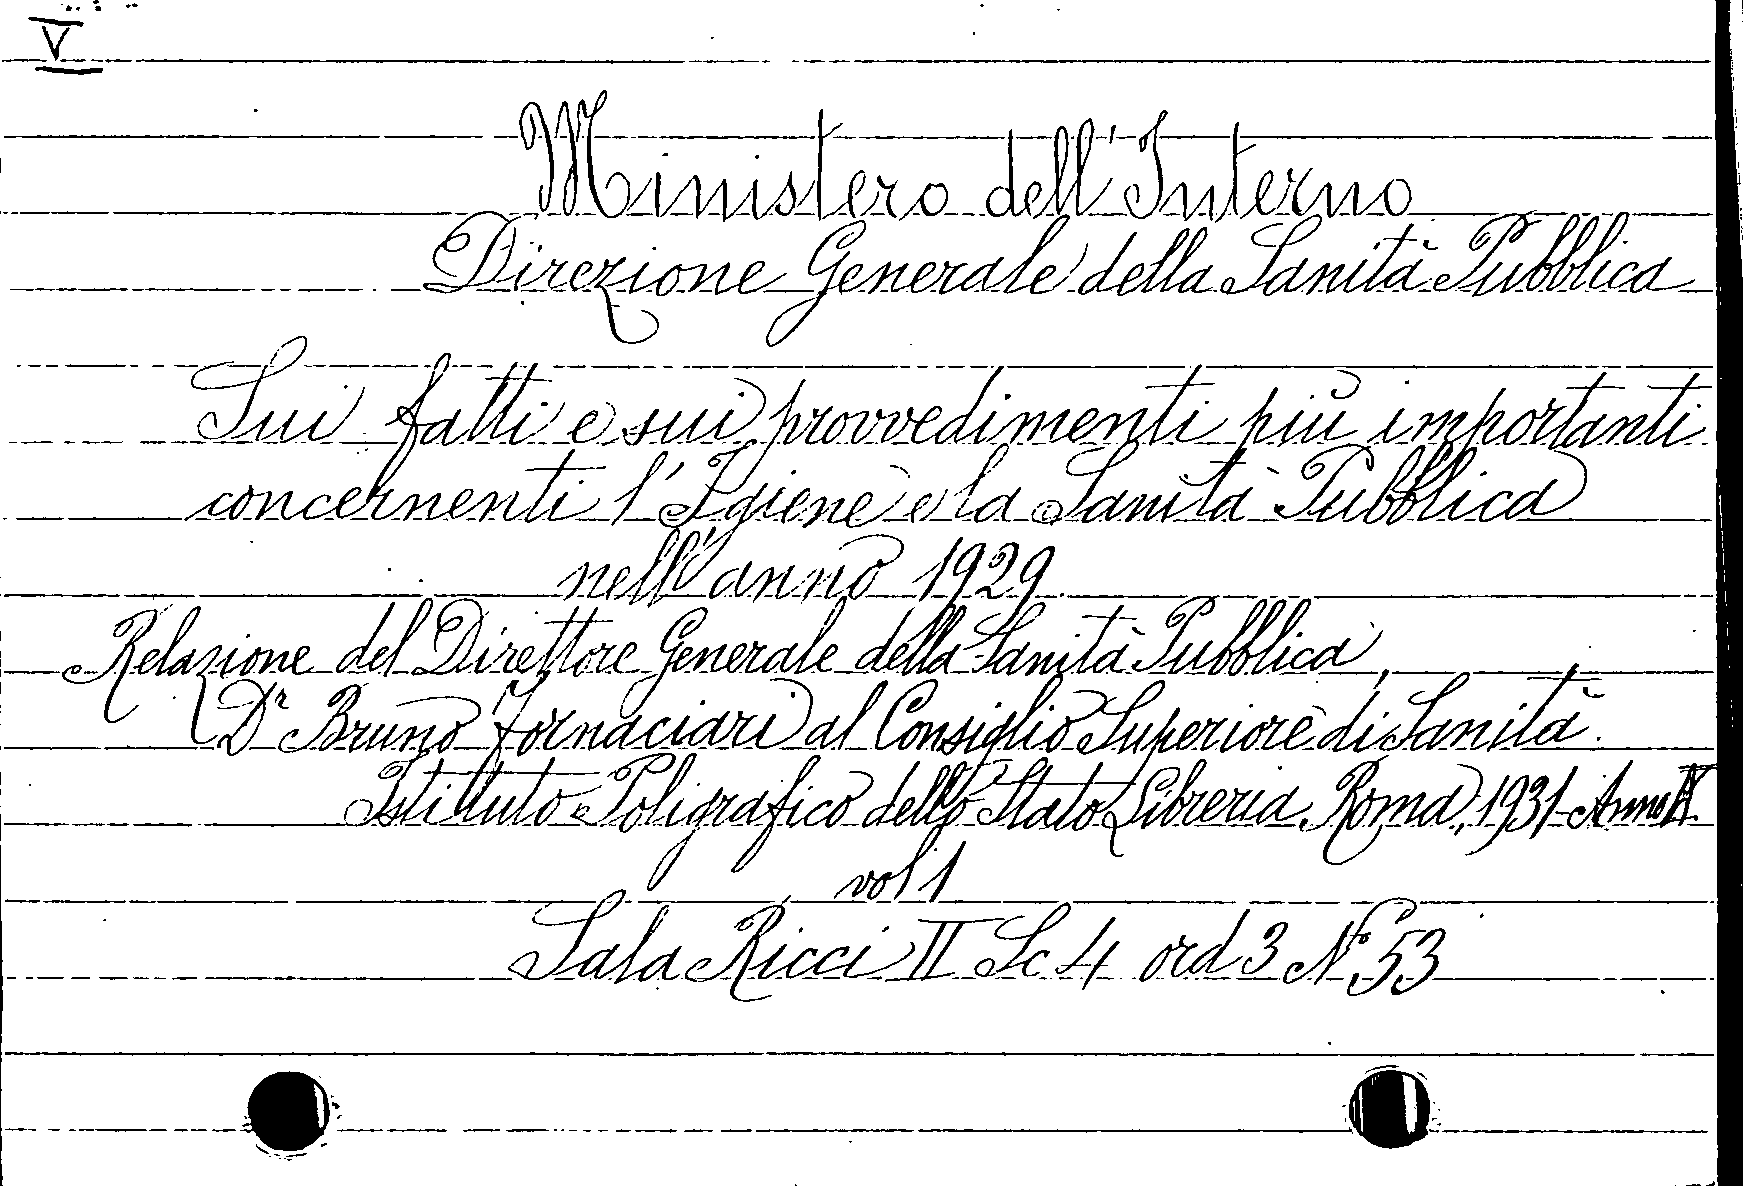 V
Ministero dell'Interno
Direzione Generale della Sanità Pubblica
Sui fatti e sui provvedimenti più importanti
concernenti l'Igiene e la Sanità Pubblica
nell'anno 1929
Relazione del Direttore Generale della Sanità Pubblica,
Dr Bruno Fornaciari al Consiglio Superiore di Sanità.
Istituto Poligrafico dello Stato Libreria, Roma, 1931 - Anno
vol 1
Sala Ricci II Sc 4 ord 3 N° 53